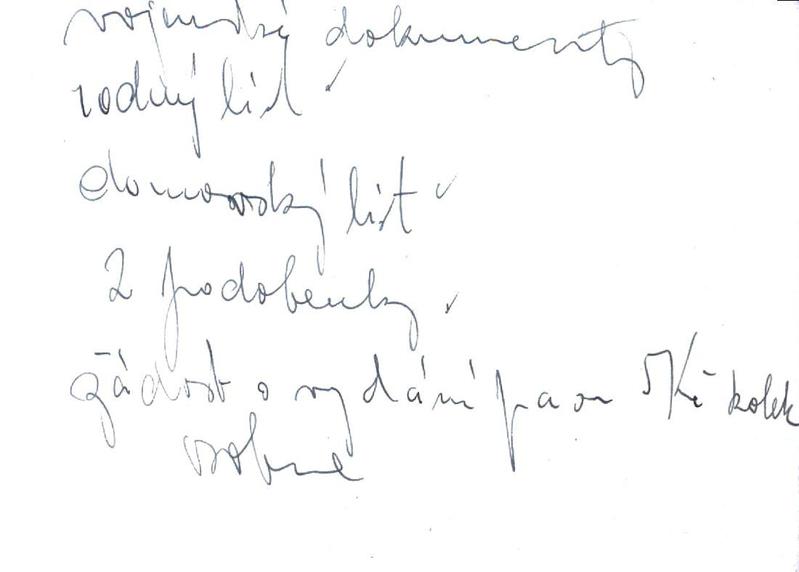 vojenské dokumenty
rodný list ✓
domovský list ✓
2 podobenky ✓
žádost o vydání pasu 5 Kč kolek
osobně